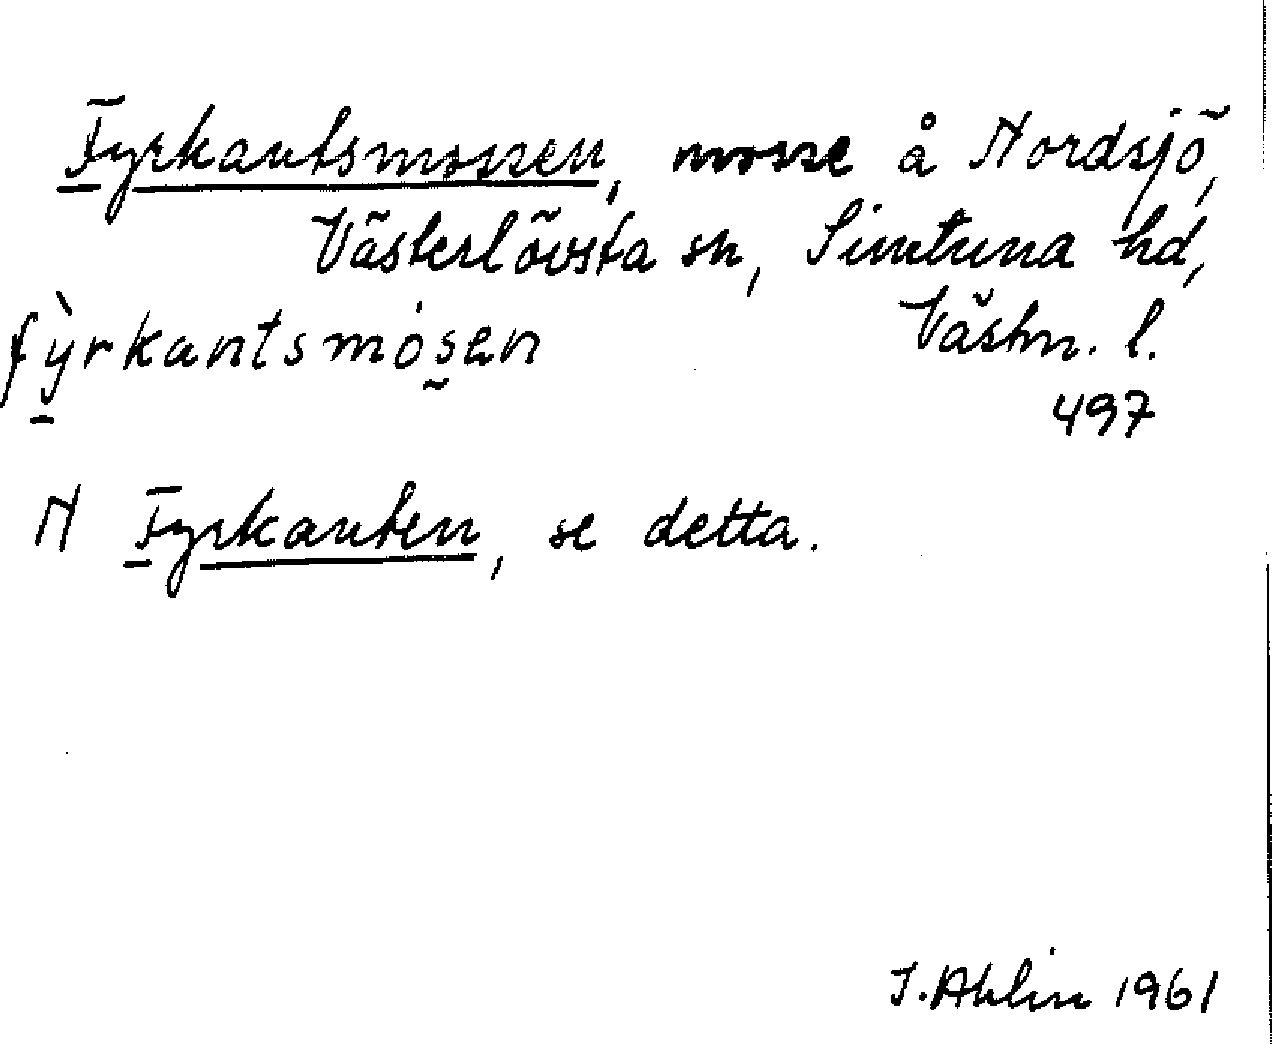 Fyrkantsmossen, mosse å Nordsjö,
Västerlövsta sn, Simtuna hd,
fỳrkantsmósen
Västm. l.
497
N Fyrkanten, se detta.
I. Ahlin 1961